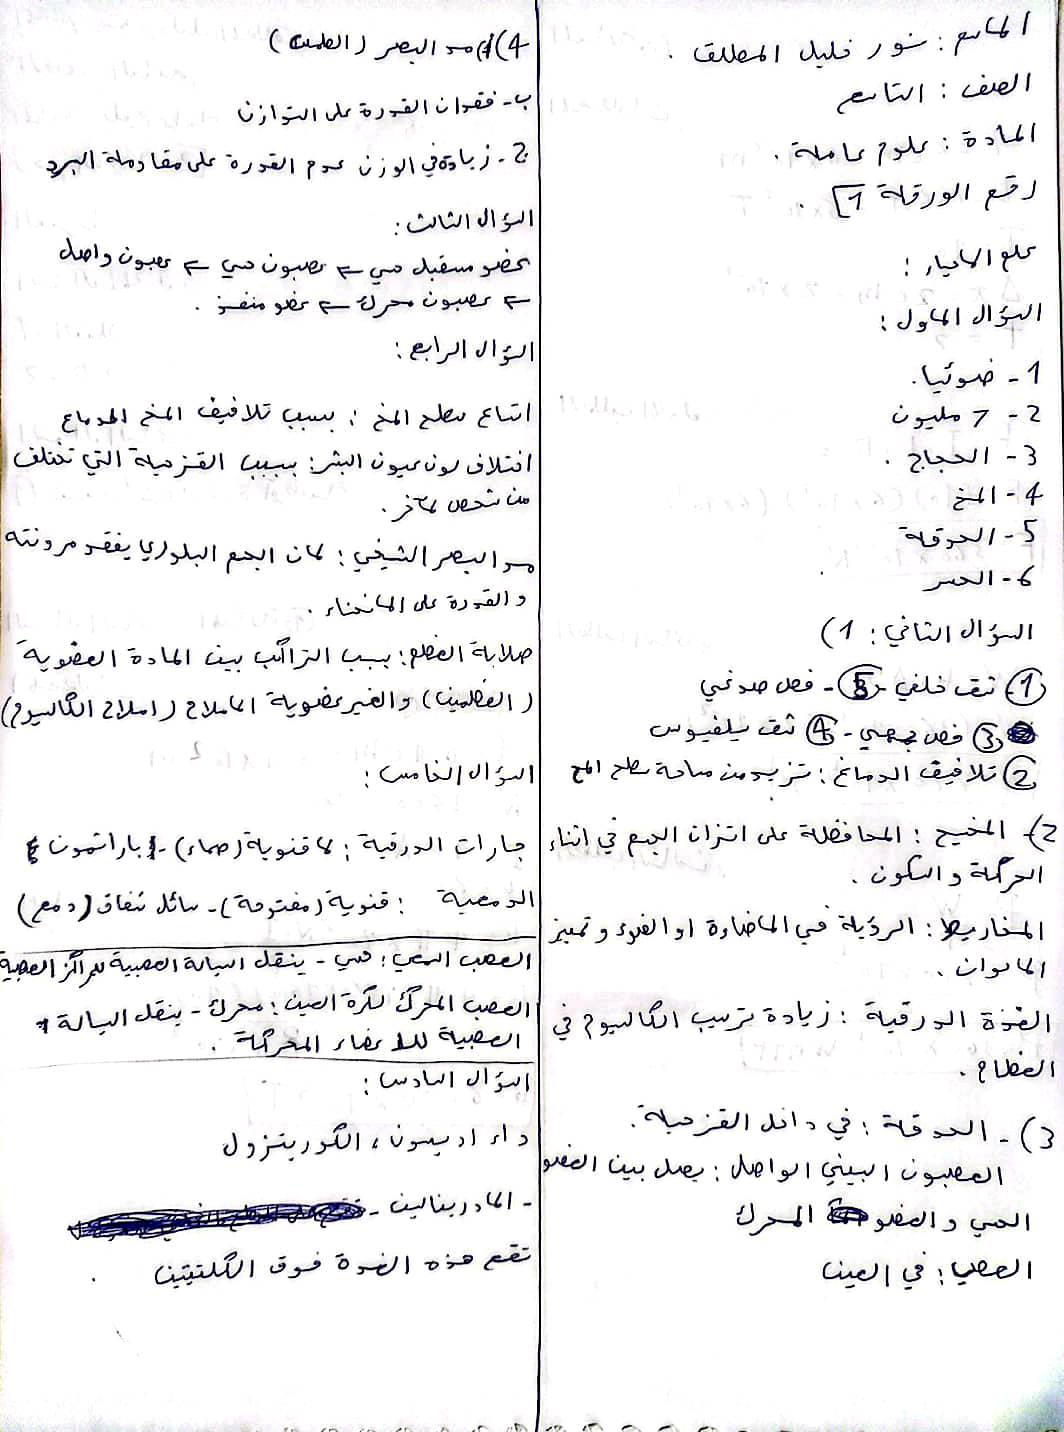 الاسم : نور خليل المطلق .
الصف : التاسع
المادة : علوم عاملة .
رقم الورقة [1] .
علم الاحياء :
السؤال الاول :
1 - ضوئيا .
2 - 7 مليون
3 - الحجاج .
4 - المخ
5 - الحدقة
6 - الحسر
السؤال الثاني : 1)
1 شق خلفي - 5 - فص صدغي
3 فص جبهي - 4 شق سيلفيوس
2 تلافيف الدماغ : تزيد من مساحة سطح المخ
2) - المخيخ : المحافظة على اتزان الجسم في اثناء
الحركة والسكون .
المخاريط : الرؤية في الاضاءة او الضوء وتمييز
الالوان .
الغدة الدرقية : زيادة ترسيب الكالسيوم في
العظام .
3) - الحدقة : في داخل القزحية .
العصبون البيني الواصل : يصل بين العضو
الحسي والعضو المحرك
العصي : في العين
4) أ) مد البصر (الطمس)
ب - فقدان القدرة على التوازن
ج - زيادة في الوزن عدم القدرة على مقاومة البرد
السؤال الثالث :
عضو مستقبل حسي ← عصبون حسي ← عصبون واصل
← عصبون محرك ← عضو منفذ .
السؤال الرابع :
اتساع سطح المخ : بسبب تلافيف المخ الدماغ
اختلاف لون عيون البشر : بسبب القزحية التي تختلف
من شخص لآخر .
مد البصر الشيخي : لان الجسم البلوري يفقد مرونته
والقدرة على الانحناء .
صلابة العظم : بسبب التراكب بين المادة العضوية
(العظمين) والغير عضوية الاملاح (املاح الكالسيوم)
السؤال الخامس :
جارات الدرقية : لا قنوية (صماء) - باراتمون
الدمعية : قنوية (مفتوحة) - سائل شفاف (دمع)
العصب السمعي : حسي - ينقل السيالة العصبية للمراكز العصبية
العصب المحرك لكرة العين : محرك - ينقل السيالة
العصبية للاعضاء المحركة .
السؤال السادس :
داء اديسون ، الكوريتزول
- الادرينالين -
تقع هذه الغدة فوق الكليتين .